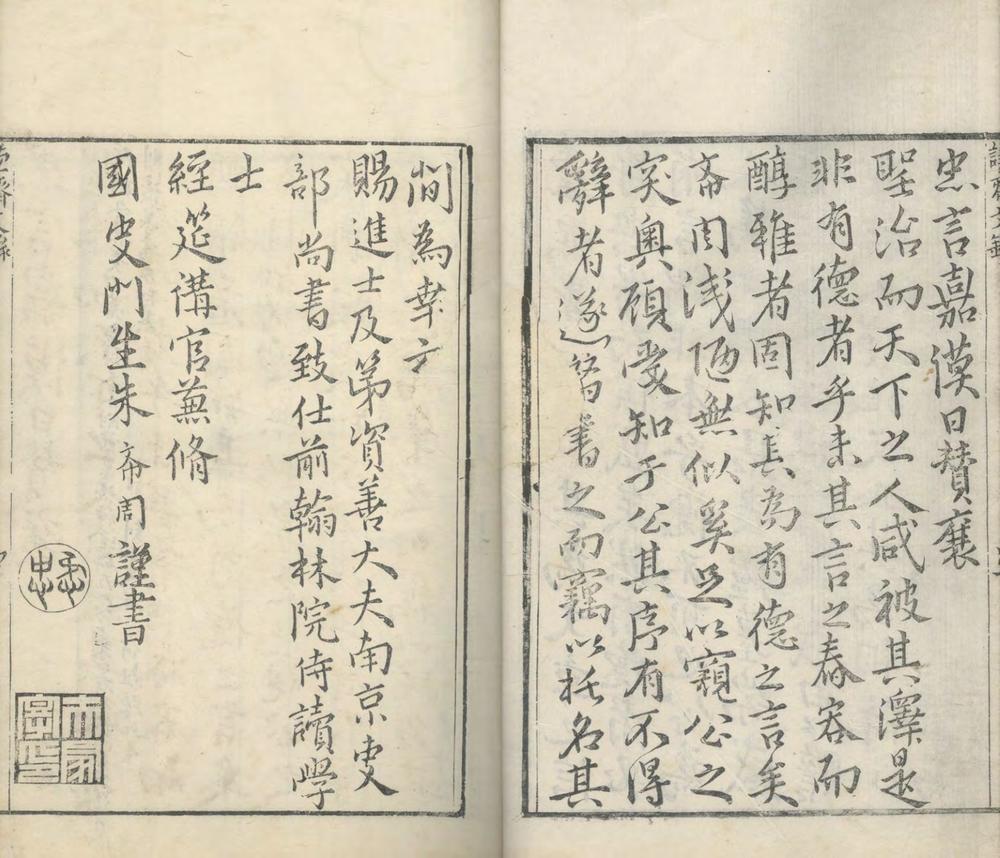 忠言嘉謨日贊襄
聖治而天下之人咸被其澤是
非有德者乎未其言之舂容而
醇雅者固知其為有德之言矣
希周淺陋無似奚足以窺公之
突奧顧受知于公其序有不得
辭者遂書之而竊以托名其
間為幸云
賜進士及第資善大夫南京吏
部尚書致仕前翰林院侍讀學
士
經筵講官兼脩
國史門生朱希周謹書